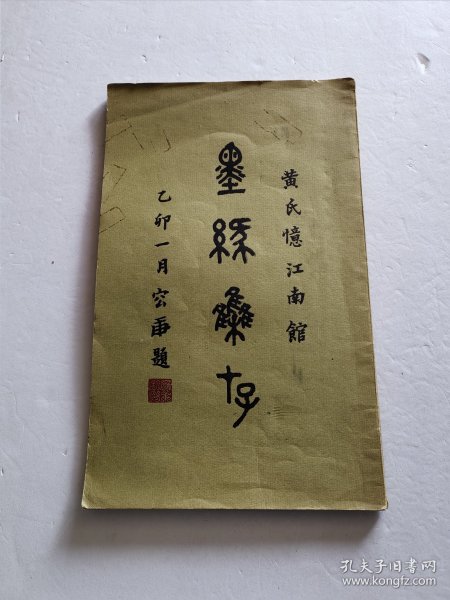 黄氏憶江南館
墨緣集存
乙卯一月容庚題
孔夫子旧书网
www.kongfz.com